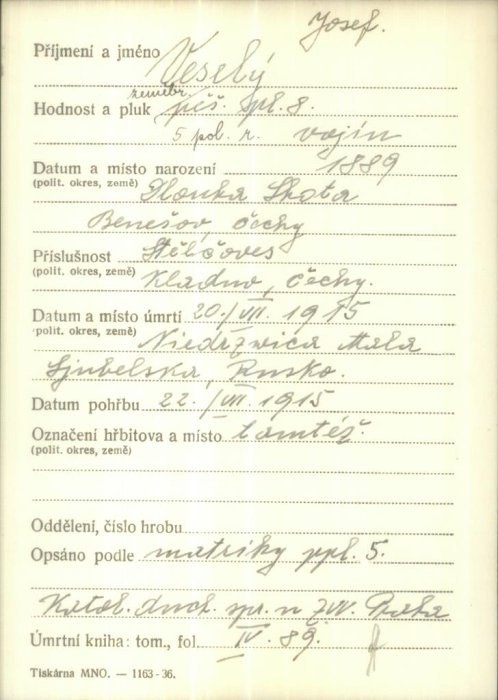 Josef.
Příjmení a jméno Veselý
zeměbr.
Hodnost a pluk pěš. pl. 8.
5 pol. r. vojín
Datum a místo narození 1889
(polit. okres, země) Dlouhá Lhota
Benešov, Čechy
Příslušnost Stělčoves
(polit. okres, země) Kladno, Čechy.
Datum a místo úmrtí 20./VII. 1915
(polit. okres, země) Niedrzwica Mala
Ljubelska, Rusko.
Datum pohřbu 22./VII. 1915
Označení hřbitova a místo tamtéž.
(polit. okres, země)
Oddělení, číslo hrobu
Opsáno podle matriky ppl. 5.
Katol. duch. spr. u ZVV. Praha
Úmrtní kniha: tom., fol. IV. 89.
Tiskárna MNO. — 1163-36.